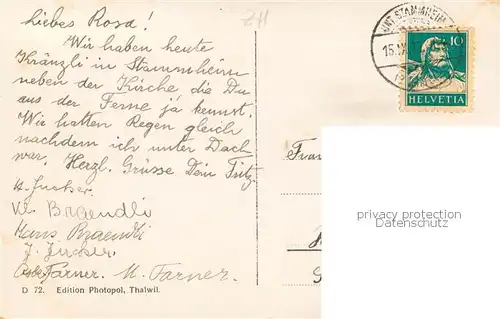 Liebes Rosa!
Wir haben heute
Kränzli in Stammheim
neben der Kirche die Du
aus der Ferne ja kennst.
Wir hatten Regen gleich
nachdem ich unter Dach
war. Herzl. Grüsse Dein Fritz
Braendli
Hans Braendli
J.
Farner. M. Farner.
D 72. Edition Photopol, Thalwil.
UNT. STAMMHEIM
15.
10
HELVETIA
privacy protection
Datenschutz